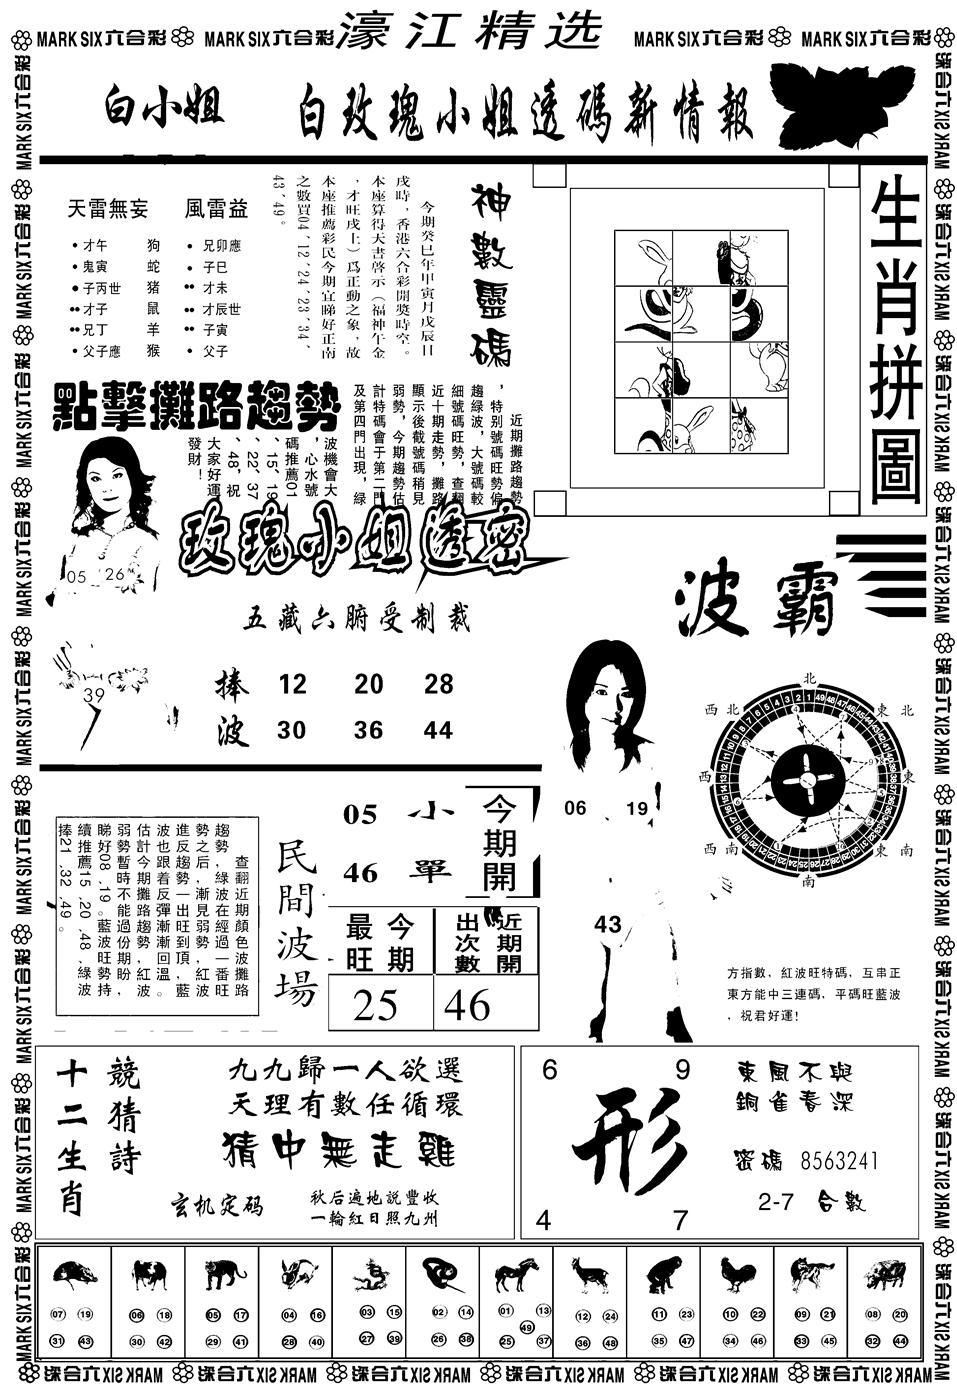 濠江精选
MARK SIX六合彩 MARK SIX六合彩 MARK SIX六合彩 MARK SIX六合彩
白小姐 白玫瑰小姐透碼新情報
天雷無妄
才午 狗
鬼寅 蛇
子丙世 猪
才子 鼠
兄丁 羊
父子應 猴
風雷益
兄卯應
子巳
才未
才辰世
子寅
父子
神數靈碼
今期癸巳年甲寅月戊辰日
戌時，香港六合彩開獎時空。
本座算得天書啓示（福神午金
，才旺戌土）爲正動之象，故
本座推薦彩民今期宜睇好正南
之數買04、12、24、23、34、
43、49。
生肖拼圖
點擊攤路趨勢
近期攤路趨勢
，特别號碼旺勢偏
趨綠波，大號碼較
細號碼旺勢，查翻
近十期走勢，攤路
顯示後截號碼稍見
弱勢，今期趨勢估
計特碼會于第二門
及第四門出現，綠
波機會大
，心水號
碼推薦01
、15、19
、22、37
、48，祝
大家好運
發財！
05 26
39
玫瑰小姐透密
五藏六腑受制裁
捧 12 20 28
波 30 36 44
波霸
06 19
43
北
東北
東
東南
南
西南
西
西北
方指數，紅波旺特碼，互串正
東方能中三連碼，平碼旺藍波
，祝君好運！
查翻近期顏色波攤路
趨勢，綠波在經過一番旺
勢之后，漸見弱勢，紅波
進反趨勢一出旺到頂，藍
波也跟着反彈漸漸回溫。
估計今期攤路趨勢，紅波
弱勢暫時不能過份期盼，
睇好08、19。藍波旺勢持
續推薦15、20、48，綠波
捧21、32、49。
民間波場
05 小
46 單
今期開
最旺 今期
出次數 近期開
25 46
十二生肖
競猜詩
九九歸一人欲選
天理有數任循環
猜中無走雞
玄机定码
秋后遍地説豐收
一輪紅日照九州
6 9
形
4 7
東風不與
銅雀春深
密碼 8563241
2-7 合數
07 19 31 43
06 18 30 42
05 17 29 41
04 16 28 40
03 15 27 39
02 14 26 38
01 13 49 25 37
12 24 36 48
11 23 35 47
10 22 34 46
09 21 33 45
08 20 32 44
MARK SIX六合彩 MARK SIX六合彩 MARK SIX六合彩 MARK SIX六合彩 MARK SIX六合彩